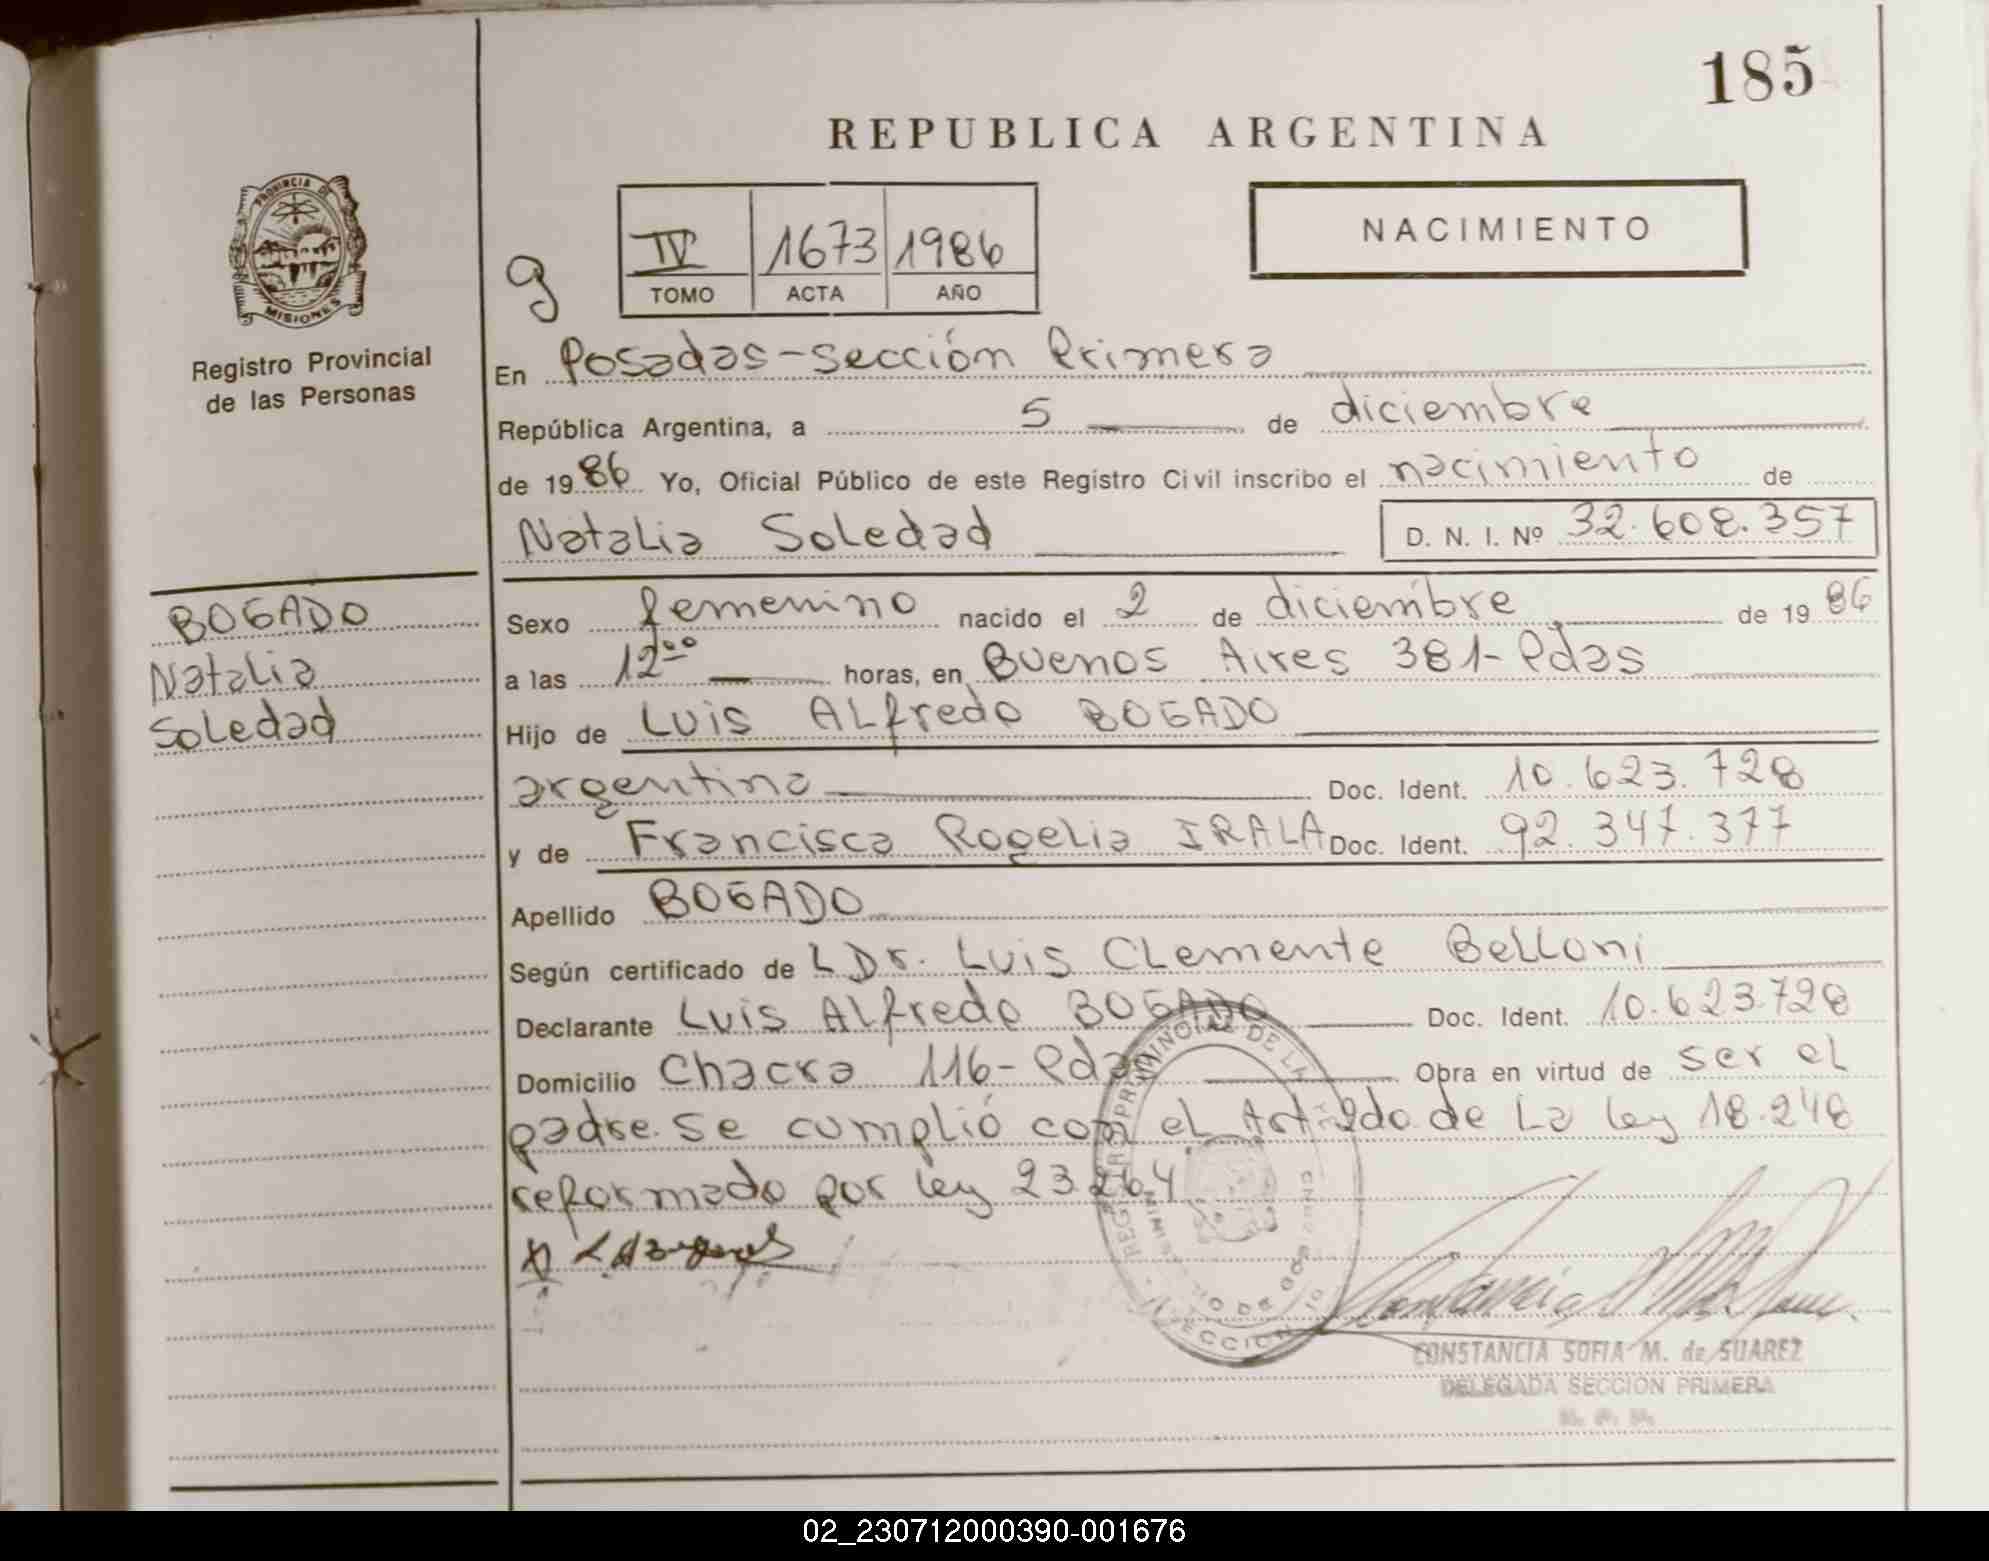 185
REPUBLICA ARGENTINA
PROVINCIA DE
MISIONES
Registro Provincial
de las Personas
NACIMIENTO
g
IV 1673 1986
TOMO ACTA AÑO
En Posadas-sección Primera
República Argentina, a 5 de diciembre
de 1986 Yo, Oficial Público de este Registro Civil inscribo el nacimiento de
Natalia Soledad D. N. I. Nº 32.608.357
BOGADO
Natalia
Soledad
Sexo femenino nacido el 2 de diciembre de 1986
a las 12⁰⁰ horas, en Buenos Aires 381-Pdas
Hijo de Luis Alfredo BOGADO
argentina Doc. Ident. 10.623.728
y de Francisca Rogelia IRALA Doc. Ident. 92.347.377
Apellido BOGADO
Según certificado de L Dr. Luis Clemente Belloni
Declarante Luis Alfredo BOGADO Doc. Ident. 10.623.728
Domicilio Chacra 116-Pdas Obra en virtud de ser el
padre. Se cumplió con el Art. 2do de La ley 18.248
reformado por ley 23.264
CONSTANCIA SOFIA M. de SUAREZ
DELEGADA SECCION PRIMERA
02_230712000390-001676